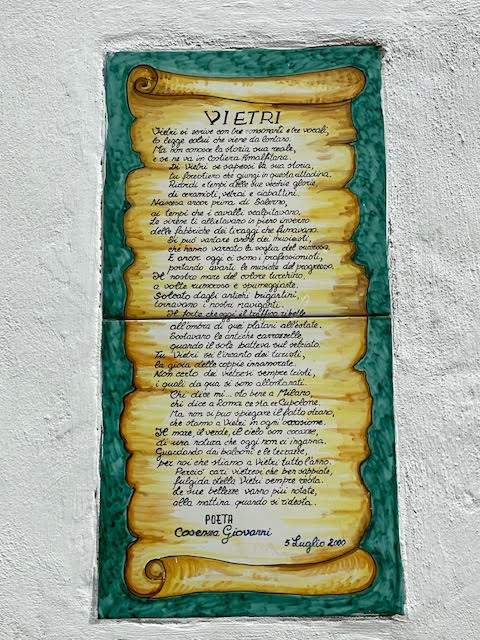 VIETRI
Vietri si scrive con tre consonanti e tre vocali,
lo legge colui che viene da lontano.
Ma non conosce la storia sua reale,
e se ne va in Costiera Amalfitana.
Di Vietri se sapessi la sua storia,
tu forestiero che giungi in questa cittadina.
Ricordi e tempi delle sue vecchie glorie,
di ceramisti, vetrai e ciabattini.
Nacque ancor prima di Salerno,
ai tempi che i cavalli scalpitavano,
Le sirene ti allietavano in pieno inverno
delle fabbriche dei tiraggi che fumavano.
Si può vantare anche dei musicisti,
che hanno varcato la soglia del successo.
E ancor oggi ci sono i professionisti,
portando avanti le musiche del progresso.
Il nostro mare del colore turchino,
a volte rumoroso e spumeggiante.
Solcato dagli antichi brigantini,
tornavano i nostri naviganti.
Il forte che oggi al traffico ribelle
all'ombra di quei platani all'estate.
Sostavano le antiche carrozzelle,
quando il sole batteva sul selciato.
Tu Vietri sei l'incanto dei turisti,
la gioia delle coppie innamorate.
Non certo dei vietresi sempre tristi,
i quali da qua si sono allontanati.
Chi dice mi... sto bene a Milano,
chi dice a Roma ce sta er Cupolone.
Ma non si può spiegare il fatto strano,
che stamo a Vietri in ogni occasione.
Il mare, il verde, il cielo son corazze,
di una natura che oggi non ci inganna.
Guardando dai balconi e le terrazze,
per noi che stiamo a Vietri tutto l'anno.
Perciò cari vietresi che ben sappiate,
fulgida stella Vietri sempre resta.
Le sue bellezze vanno più notate,
alla mattina quando si ridesta.
POETA
Cosenza Giovanni
5 Luglio 2000